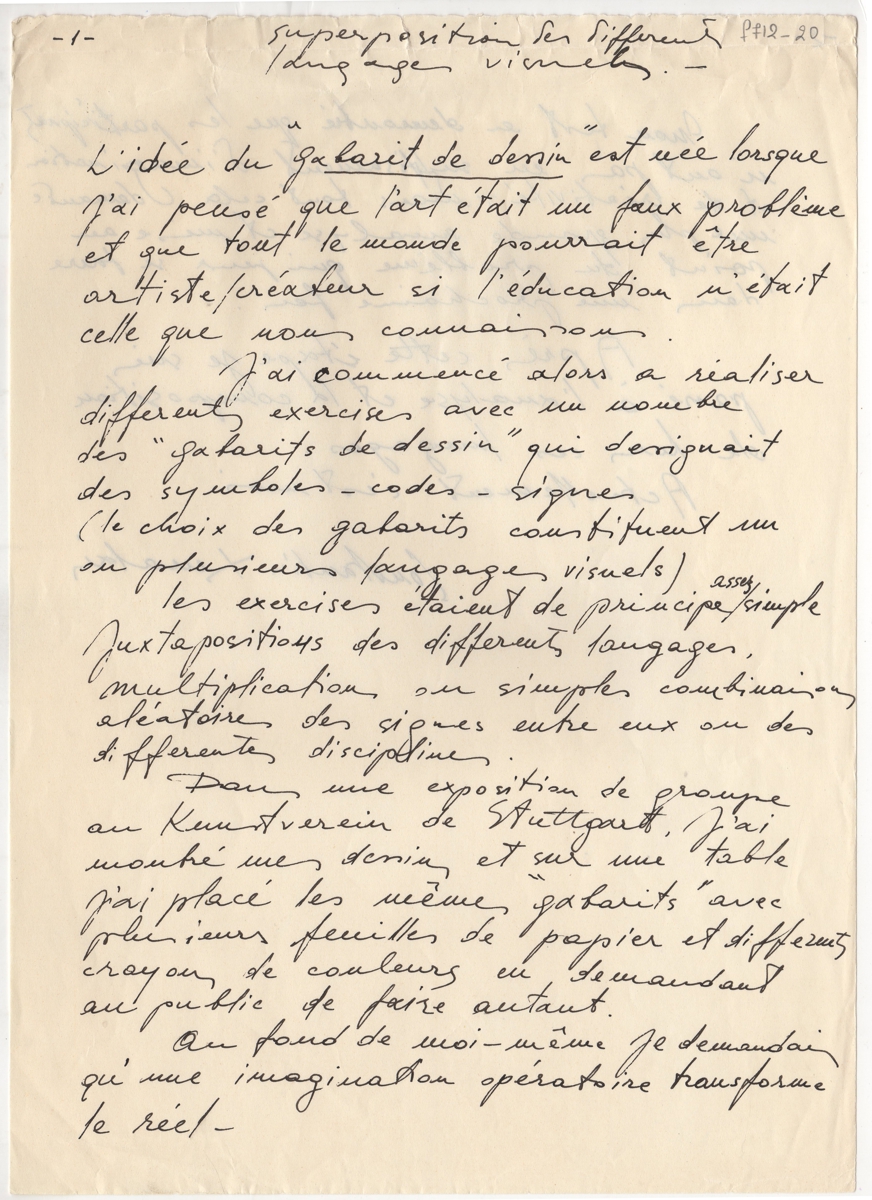 -1-
superposition des differents
langages visuels. -
P712-20
L'idée du "gabarit de dessin" est née lorsque
j'ai pensé que l'art était un faux problème
et que tout le monde pourrait être
artiste/créateur si l'éducation n'était
celle que nous connaissons.
J'ai commencé alors a réaliser
differents exercises avec un nombre
des "gabarits de dessin" qui designait
des symboles - codes - signes
(le choix des gabarits constituent un
ou plusieurs langages visuels)
les exercises étaient de principe assez/simple
Juxtapositions des differents langages,
multiplications ou simples combinaisons
aléatoires des signes entre eux ou des
differentes disciplines.
Dans une exposition de groupe
au Kunstverein de Stuttgart, j'ai
montré mes dessins et sur une table
j'ai placé les mêmes "gabarits" avec
plusieurs feuilles de papier et differents
crayons de couleurs en demandant
au public de faire autant.
Au fond de moi-même je demandais
qu'une imagination opératoire transforme
le réel -